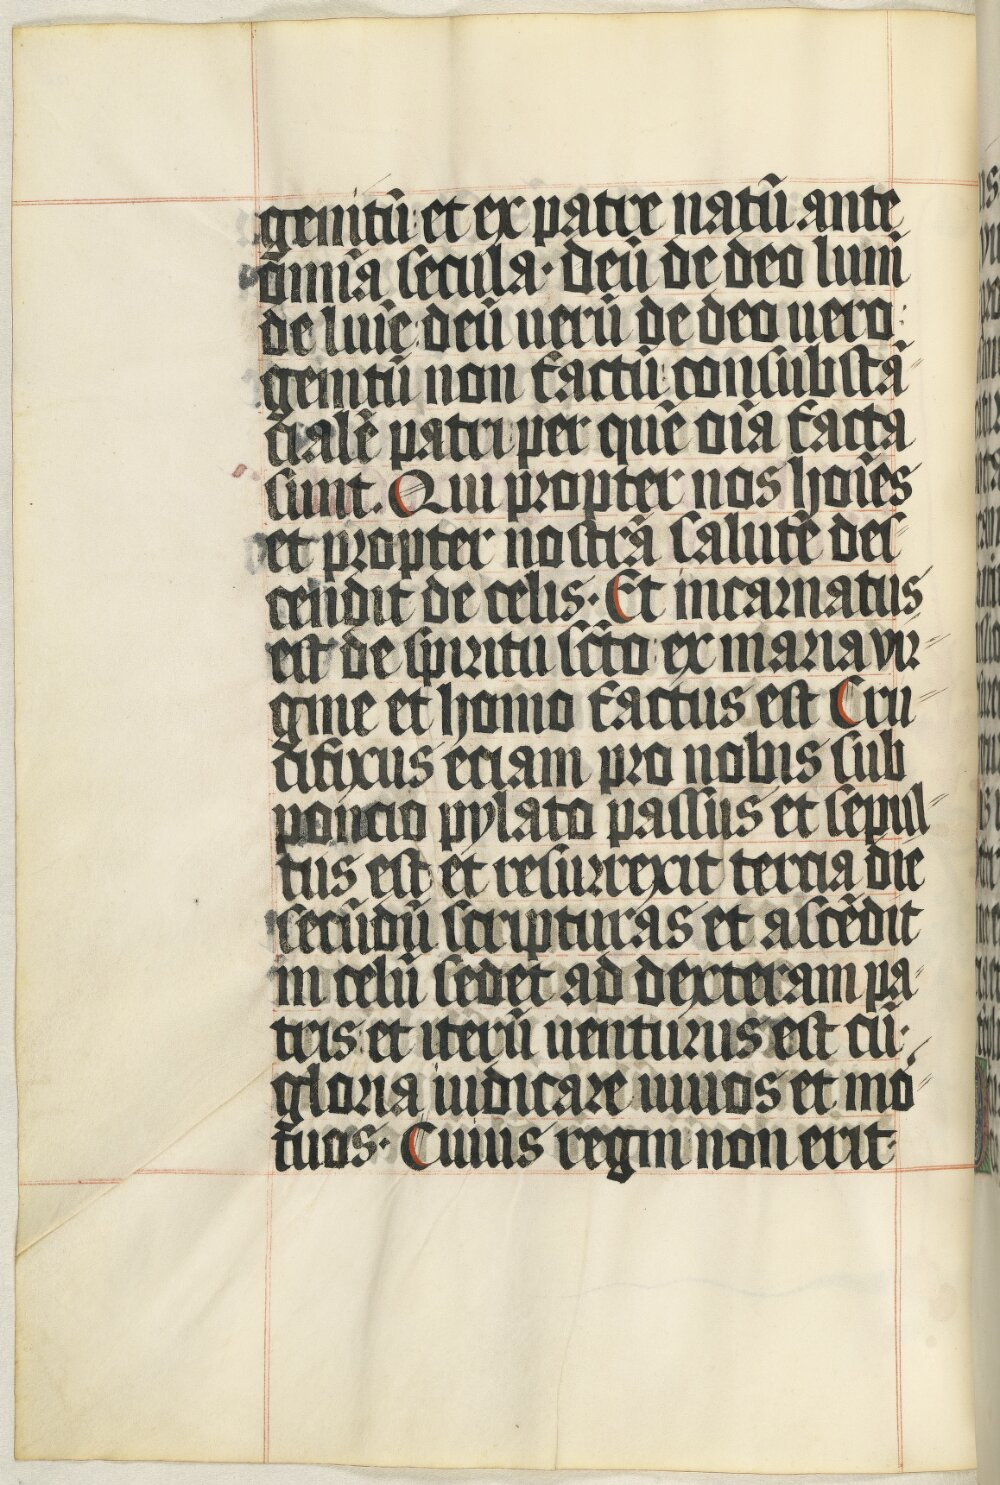 genitū et ex patre natū ante
om̄ia secula· deū de deo lumī
de lūīe deū uerū de deo uero:
genitū non factū consubstā
ciale᷑ patri per quē oīa facta
sunt. Qui propter nos hoīes
et propter nostrā salutē des
cendit de celis· Et incarnatus
est de spiritu scto ex maria vir
gine et homo factus est Cru
cifixus eciam pro nobis sub
poncio pylato passus et sepul
tus est et resurrexit tercia die
secūdū scripturas et ascēdit
in celū sedet ad dexteram pa
tris et iterū uenturus est cū·
gloria iudicare uiuos et mo
tuos· Cuius regni non erit·